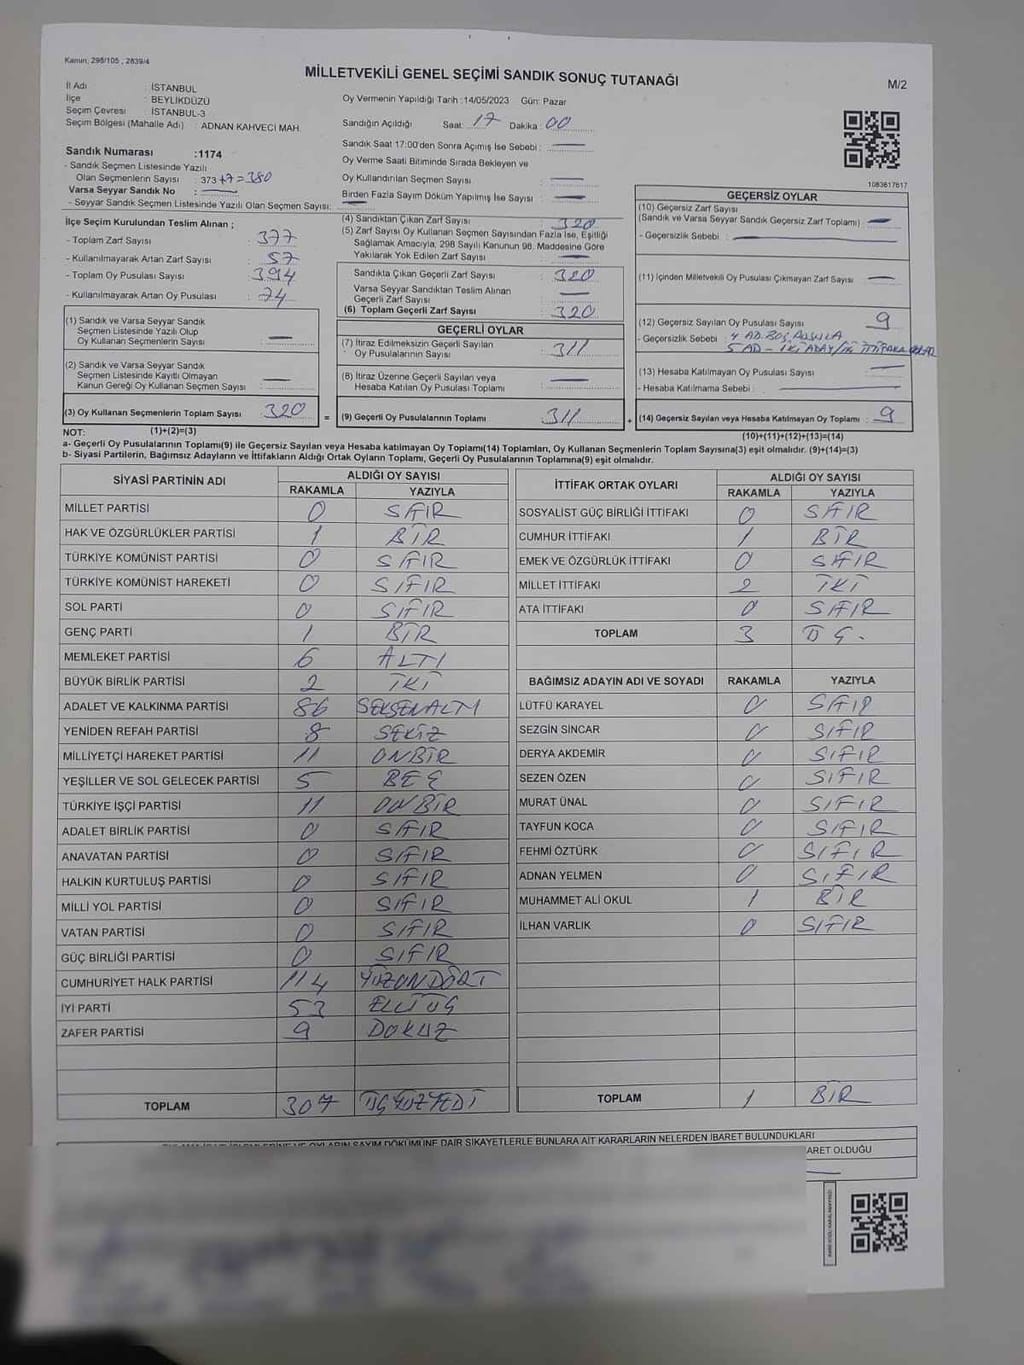 Kanun, 298/105 , 2839/4
MİLLETVEKİLİ GENEL SEÇİMİ SANDIK SONUÇ TUTANAĞI
M/2
İl Adı : İSTANBUL
İlçe : BEYLİKDÜZÜ
Seçim Çevresi : İSTANBUL-3
Seçim Bölgesi (Mahalle Adı) : ADNAN KAHVECİ MAH.
Sandık Numarası :1174
- Sandık Seçmen Listesinde Yazılı
Olan Seçmenlerin Sayısı : 373 +7=380
Varsa Seyyar Sandık No :
- Seyyar Sandık Seçmen Listesinde Yazılı Olan Seçmen Sayısı:
Oy Vermenin Yapıldığı Tarih :14/05/2023 Gün: Pazar
Sandığın Açıldığı Saat: 17 Dakika : 00
Sandık Saat 17:00'den Sonra Açımış İse Sebebi :
Oy Verme Saati Bitiminde Sırada Bekleyen ve
Oy Kullandırılan Seçmen Sayısı :
Birden Fazla Sayım Döküm Yapılmış İse Sayısı :
1083617617
İlçe Seçim Kurulundan Teslim Alınan ;
- Toplam Zarf Sayısı : 377
- Kullanılmayarak Artan Zarf Sayısı : 57
- Toplam Oy Pusulası Sayısı : 394
- Kullanılmayarak Artan Oy Pusulası : 74
(1) Sandık ve Varsa Seyyar Sandık
Seçmen Listesinde Yazılı Olup
Oy Kullanan Seçmenlerin Sayısı :
(2) Sandık ve Varsa Seyyar Sandık
Seçmen Listesinde Kayıtlı Olmayan
Kanun Gereği Oy Kullanan Seçmen Sayısı :
(3) Oy Kullanan Seçmenlerin Toplam Sayısı : 320
(4) Sandıktan Çıkan Zarf Sayısı : 320
(5) Zarf Sayısı Oy Kullanan Seçmen Sayısından Fazla İse, Eşitliği
Sağlamak Amacıyla, 298 Sayılı Kanunun 98. Maddesine Göre
Yakılarak Yok Edilen Zarf Sayısı :
Sandıkta Çıkan Geçerli Zarf Sayısı : 320
Varsa Seyyar Sandıktan Teslim Alınan
Geçerli Zarf Sayısı :
(6) Toplam Geçerli Zarf Sayısı : 320
GEÇERLİ OYLAR
(7) İtiraz Edilmeksizin Geçerli Sayılan
Oy Pusulalarının Sayısı : 311
(8) İtiraz Üzerine Geçerli Sayılan veya
Hesaba Katılan Oy Pusulası Toplamı :
= (9) Geçerli Oy Pusulalarının Toplamı : 311 +
GEÇERSİZ OYLAR
(10) Geçersiz Zarf Sayısı
(Sandık ve Varsa Seyyar Sandık Geçersiz Zarf Toplamı) :
- Geçersizlik Sebebi :
(11) İçinden Milletvekili Oy Pusulası Çıkmayan Zarf Sayısı :
(12) Geçersiz Sayılan Oy Pusulası Sayısı : 9
- Geçersizlik Sebebi : 4 AD. BOŞ PUSULA
5 AD - İKİ ADAY/İKİ İTTİFAKA
(13) Hesaba Katılmayan Oy Pusulası Sayısı :
- Hesaba Katılmama Sebebi :
(14) Geçersiz Sayılan veya Hesaba Katılmayan Oy Toplamı : 9
NOT: (1)+(2)=(3) (10)+(11)+(12)+(13)=(14)
a- Geçerli Oy Pusulalarının Toplamı(9) ile Geçersiz Sayılan veya Hesaba katılmayan Oy Toplamı(14) Toplamları, Oy Kullanan Seçmenlerin Toplam Sayısına(3) eşit olmalıdır. (9)+(14)=(3)
b- Siyasi Partilerin, Bağımsız Adayların ve İttifakların Aldığı Ortak Oyların Toplamı, Geçerli Oy Pusulalarının Toplamına(9) eşit olmalıdır.
SİYASİ PARTİNİN ADI ALDIĞI OY SAYISI
RAKAMLA YAZIYLA
MİLLET PARTİSİ 0 SIFIR
HAK VE ÖZGÜRLÜKLER PARTİSİ 1 BİR
TÜRKİYE KOMÜNİST PARTİSİ 0 SIFIR
TÜRKİYE KOMÜNİST HAREKETİ 0 SIFIR
SOL PARTİ 0 SIFIR
GENÇ PARTİ 1 BİR
MEMLEKET PARTİSİ 6 ALTI
BÜYÜK BİRLİK PARTİSİ 2 İKİ
ADALET VE KALKINMA PARTİSİ 86 SEKSENALTI
YENİDEN REFAH PARTİSİ 8 SEKİZ
MİLLİYETÇİ HAREKET PARTİSİ 11 ONBİR
YEŞİLLER VE SOL GELECEK PARTİSİ 5 BEŞ
TÜRKİYE İŞÇİ PARTİSİ 11 ONBİR
ADALET BİRLİK PARTİSİ 0 SIFIR
ANAVATAN PARTİSİ 0 SIFIR
HALKIN KURTULUŞ PARTİSİ 0 SIFIR
MİLLİ YOL PARTİSİ 0 SIFIR
VATAN PARTİSİ 0 SIFIR
GÜÇ BİRLİĞİ PARTİSİ 0 SIFIR
CUMHURİYET HALK PARTİSİ 114 YÜZONDÖRT
İYİ PARTİ 53 ELLİÜÇ
ZAFER PARTİSİ 9 DOKUZ
TOPLAM 307 ÜÇYÜZYEDİ
İTTİFAK ORTAK OYLARI ALDIĞI OY SAYISI
RAKAMLA YAZIYLA
SOSYALİST GÜÇ BİRLİĞİ İTTİFAKI 0 SIFIR
CUMHUR İTTİFAKI 1 BİR
EMEK VE ÖZGÜRLÜK İTTİFAKI 0 SIFIR
MİLLET İTTİFAKI 2 İKİ
ATA İTTİFAKI 0 SIFIR
TOPLAM 3 ÜÇ.
BAĞIMSIZ ADAYIN ADI VE SOYADI RAKAMLA YAZIYLA
LÜTFÜ KARAYEL 0 SIFIR
SEZGİN SİNCAR 0 SIFIR
DERYA AKDEMİR 0 SIFIR
SEZEN ÖZEN 0 SIFIR
MURAT ÜNAL 0 SIFIR
TAYFUN KOCA 0 SIFIR
FEHMİ ÖZTÜRK 0 SIFIR
ADNAN YELMEN 0 SIFIR
MUHAMMET ALİ OKUL 1 BİR
İLHAN VARLIK 0 SIFIR
TOPLAM 1 BİR
SAYIM DÖKÜMÜNE DAİR ŞİKAYETLERLE BUNLARA AİT KARARLARIN NELERDEN İBARET BULUNDUKLARI
ARET OLDUĞU